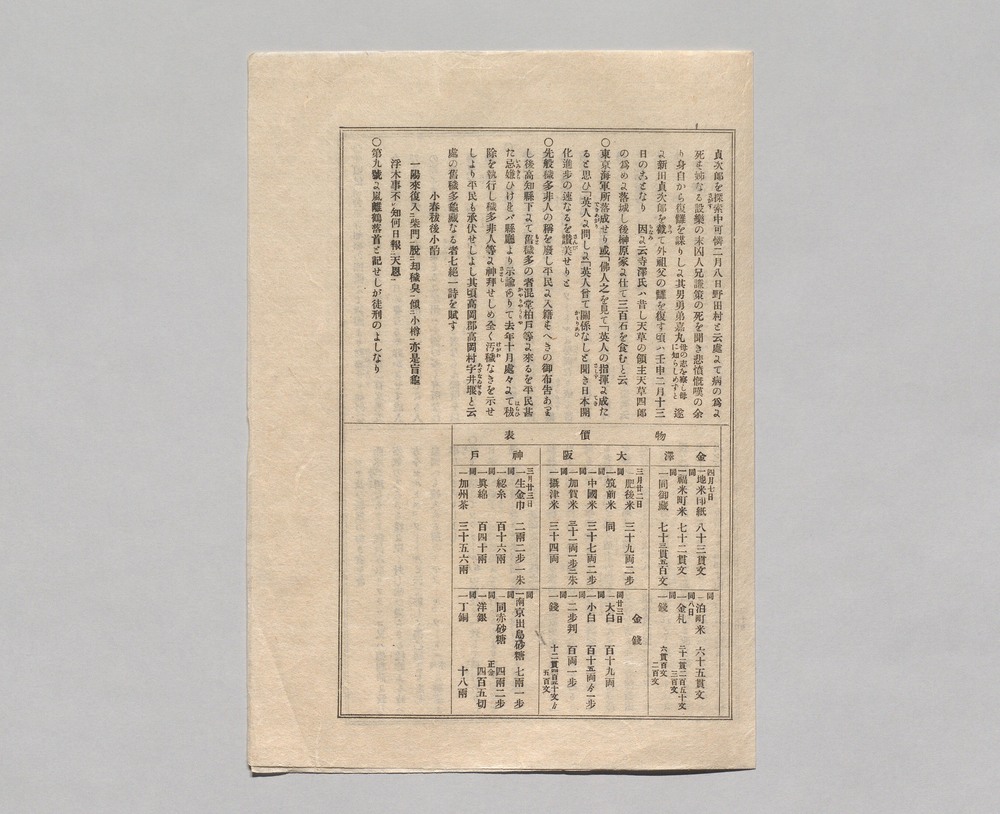 貞次郎を探索中可憐二月八日野田村と云處よて病の爲よ
死も姉なる設樂の末囚人兄謙策の死を聞き悲憤慨嘆の余
り身自から復讎を謀りしよ其男勇弟嘉丸母の志を察し母に知らしめすと遂
よ新田貞次郎を截て外祖父の讎を復す頃ハ壬申二月十三
日のゐとなり 因よ云寺澤氏ハ昔し天草の領主天草四郎
の爲めよ落城し後榊原家よ仕て三百石を食むと云
〇東京海軍所落成せり或「佛人之を見て「英人の指揮よ成た
ると思ひ「英人よ問しよ「英人曾て關係なしと聞き日本開
化進歩の速なるを讃美せりと
〇先般穢多非人の稱を廢し平民よ入籍もへきの御布告あつま
し後高知縣下よて舊穢多の者混堂柏戸等よ來るを平民甚
た忌嫌ひけれバ縣廳より示諭ありて去年十月處々よて秡
除を執行し穢多非人等よ神拜せしめ全く汚穢なきを示せ
しより平民も承伏せしよし其頃高岡郡高岡村字井堰と云
處の舊穢多龜藏なる者七絕一詩を賦す
小春秡後小酌
一陽來復入柴門脫却穢臭傾小樽亦是盲龜
浮木事不知何日報天恩
〇第九號よ嵐離鶴落首と記せしが徒刑のよしなり
物價表
金澤
四月七日
一地米印紙 八十三貫文
同
一福米町米 七十二貫文
同
一同御藏 七十三貫五百文
同
一泊町米 六十五貫文
同八日
一金札 二十一貫二百五十文
三百文
同
一錢 六貫百文
二百文
大阪
三月廿二日
一肥後米 三十九兩二步
同
一筑前米 同
同
一中國米 三十七兩二步
同
一加賀米 三十二兩一步三朱
同
一攝津米 三十四兩
金錢
同廿三日
一大白 百十九兩
同
一小白 百十五兩ゟ一步
同
一二步判 百兩一步
同
一錢 十二貫四百五十文ゟ
五百文
神戶
三月廿三日
一生金巾 二兩二步一朱
同
一綛糸 百十六兩
同
一眞綿 百四十兩
同
一加州茶 三十五六兩
同
一南京出島砂糖 七兩一步
同
一同赤砂糖 四兩二步
同
一洋銀 正金四百五切
同
一丁銅 十八兩